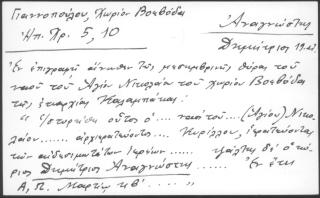 Γιαννοπούλου, Χωρίον Βοεβόδα
Ἀπ. Χρ. 5, 10
Ἀναγνώστης
Δημήτριος
Ἐν ἐπιγραφῇ ἄνωθεν τῆς μεσημβρινῆς θύρας τοῦ
ναοῦ τοῦ Ἁγίου Νικολάου τοῦ χωρίου Βοεβόδα
τῆς ἐπαρχίας Καλαμπάκας:
οὗτος ὁ .... ναὸς τοῦ ....(Ἁγίου) Νικο-
λάου....... ἀρχιερατεύοντος.... Κυρίλλου, ἐφημερεύοντος
τῶν αἰδεσιμωτάτων ἱερέων ......
Δημήτριος Ἀναγνώστης ...... Ἐν ἔτει
Α, Π. Μαρτίῳ κβ΄ ....."